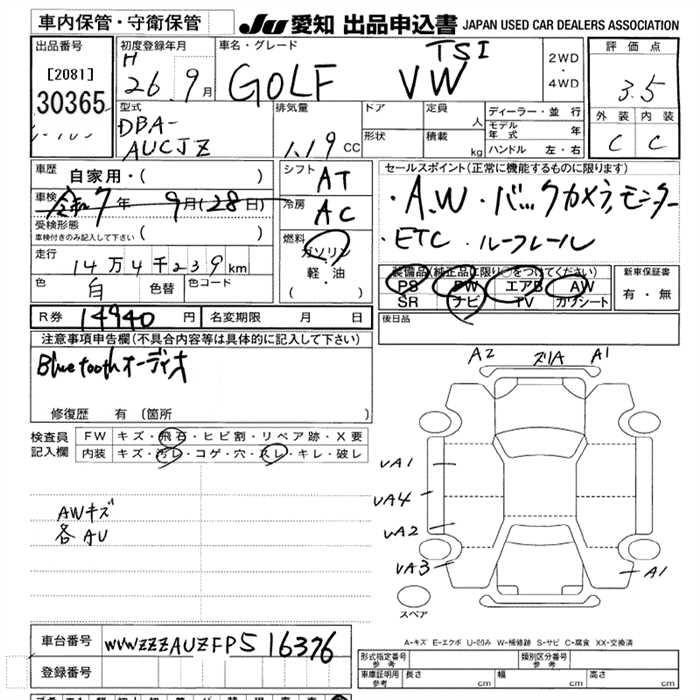 車内保管・守衛保管
JU 愛知 出品申込書 JAPAN USED CAR DEALERS ASSOCIATION
出品番号
[2081]
30365
初度登録年月
H 26.9月
車名・グレード
GOLF VW TSI
2WD・4WD
評価点
3.5
外装 内装
C C
型式
DBA-
AUCJZ
排気量
1.19 CC
ドア
形状
定員 人
積載 kg
ディーラー・並行
モデル年式 年
ハンドル 左・右
車歴 自家用・( )
車検 令和7年 9月(28日)
受検形態
車検付きのみ記入して下さい ( )
走行 14万4千239km
色 白 色替 色コード
シフト AT
冷房 AC
燃料 ガソリン
軽・油
( ・ )
セールスポイント(正常に機能するものに限ります)
・A.W ・バックカメラ,モニター
・ETC ・ルーフレール
装備品(純正品に限り○をつけてください)
PS PW エアB AW
SR ナビ TV カワシート
新車保証書
有・無
R券 14940円 名変期限 月 日
後日品
注意事項申告欄(不具合内容等は具体的に記入して下さい)
Bluetoothオーディオ
修復歴 有(箇所 )
検査員記入欄
FW キズ・飛石・ヒビ割・リペア跡・X要
内装 キズ・汚レ・コゲ・穴・スレ・キレ・破レ
AWキズ
各AU
A2 ズリA A1
VA1
VA4
VA2
VA3
A1
スペア
A-キズ E-エクボ U-凹み W-補修跡 S-サビ C-腐食 XX-交換済
車台番号 WVWZZZAUZFP516376
登録番号
形式指定番号 参考
類別区分番号 参考
車庫証明用 参考 長さ cm 幅 cm 高さ cm